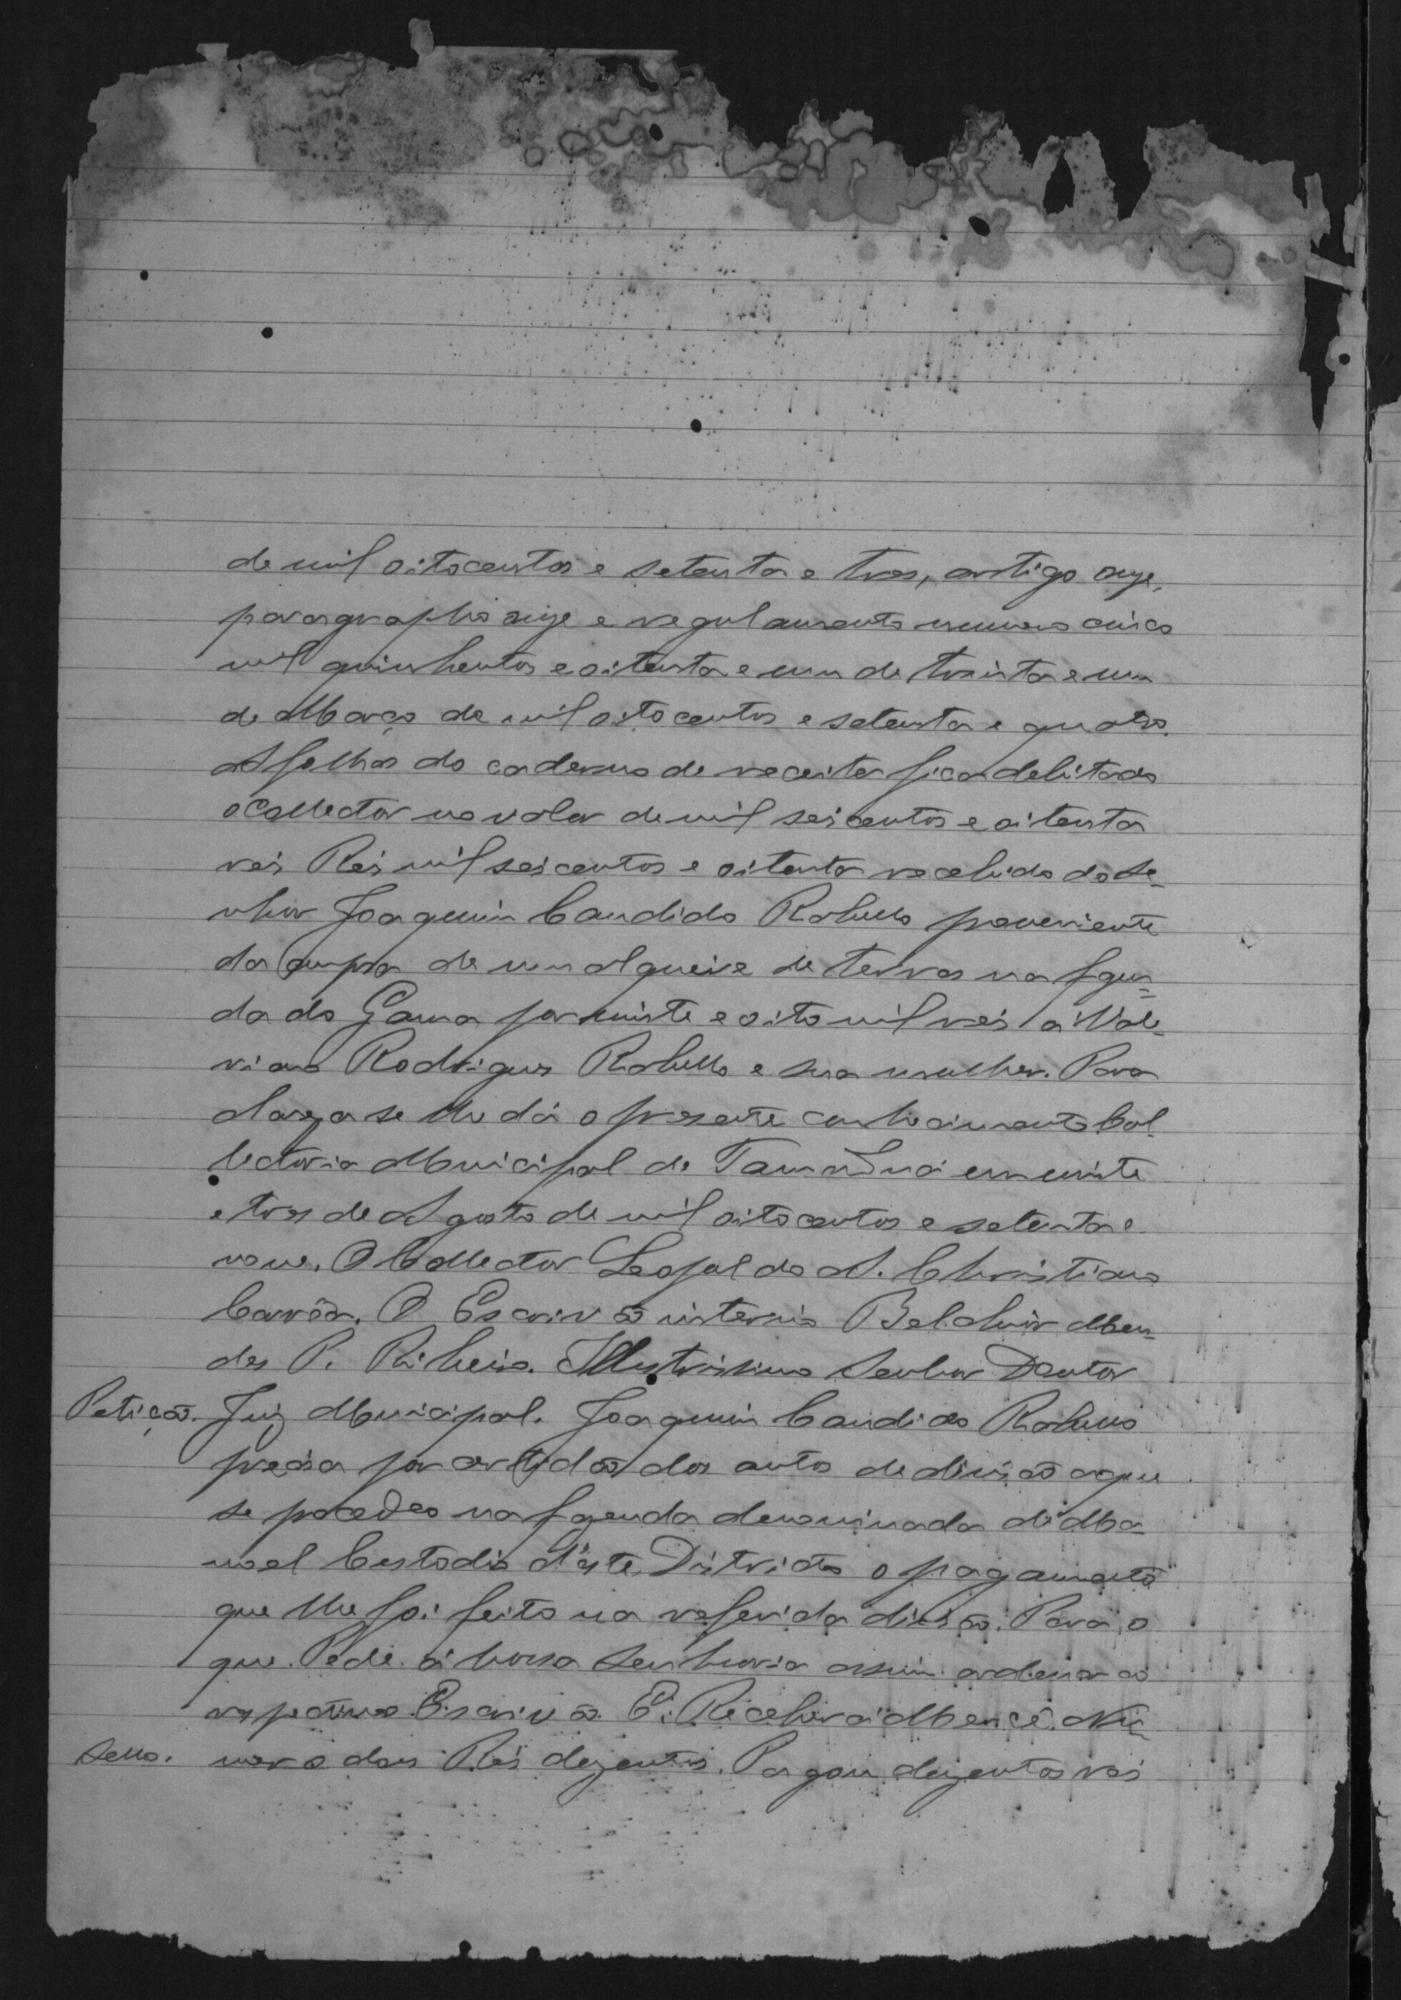 de mil oitocentos e setenta e tres, artigo onze,
paragrapho onze e regulamento numero cinco
mil quinhentos e oitenta e um de trinta e um
de Março de mil oitocentos e setenta e quatro.
As folhas do caderno de receita fica debitado
o Collector no valor de mil seiscentos e oitenta
reis Reis mil seiscentos e oitenta recebido do Se-
nhor Joaquim Candido Rabello proveniente
da compra de um alqueire de terras na fazen=
da do Gama por vinte e oito mil reis a Vale-
riano Rodrigues Rabello e sua mulher. Para
clareza se lhe dá o presente conhecimento Col-
lectoria Municipal de Tamanduá em vinte
e tres de Agosto de mil oitocentos e setenta e
nove. O Collector Leopoldo A. Christiano
O Escrivão interino Belchior Men=
des P. Ribeiro. Illustrissimo Senhor Doutor
Petição. Juiz Municipal. Joaquim Candido Rabello
precisa por certidão dos autos de divisão a que
se procedeo na fazenda denominada de Ma-
noel Custodio d'este Districto o pagamento
que lhe foi feito na referida divisão. Para o
que Pede á vossa Senhoria assim ordenar ao
respectivo Escrivão. E. Receberá Mercê. Nu-
Sello. mero dois Reis duzentos. Pagou duzentos reis